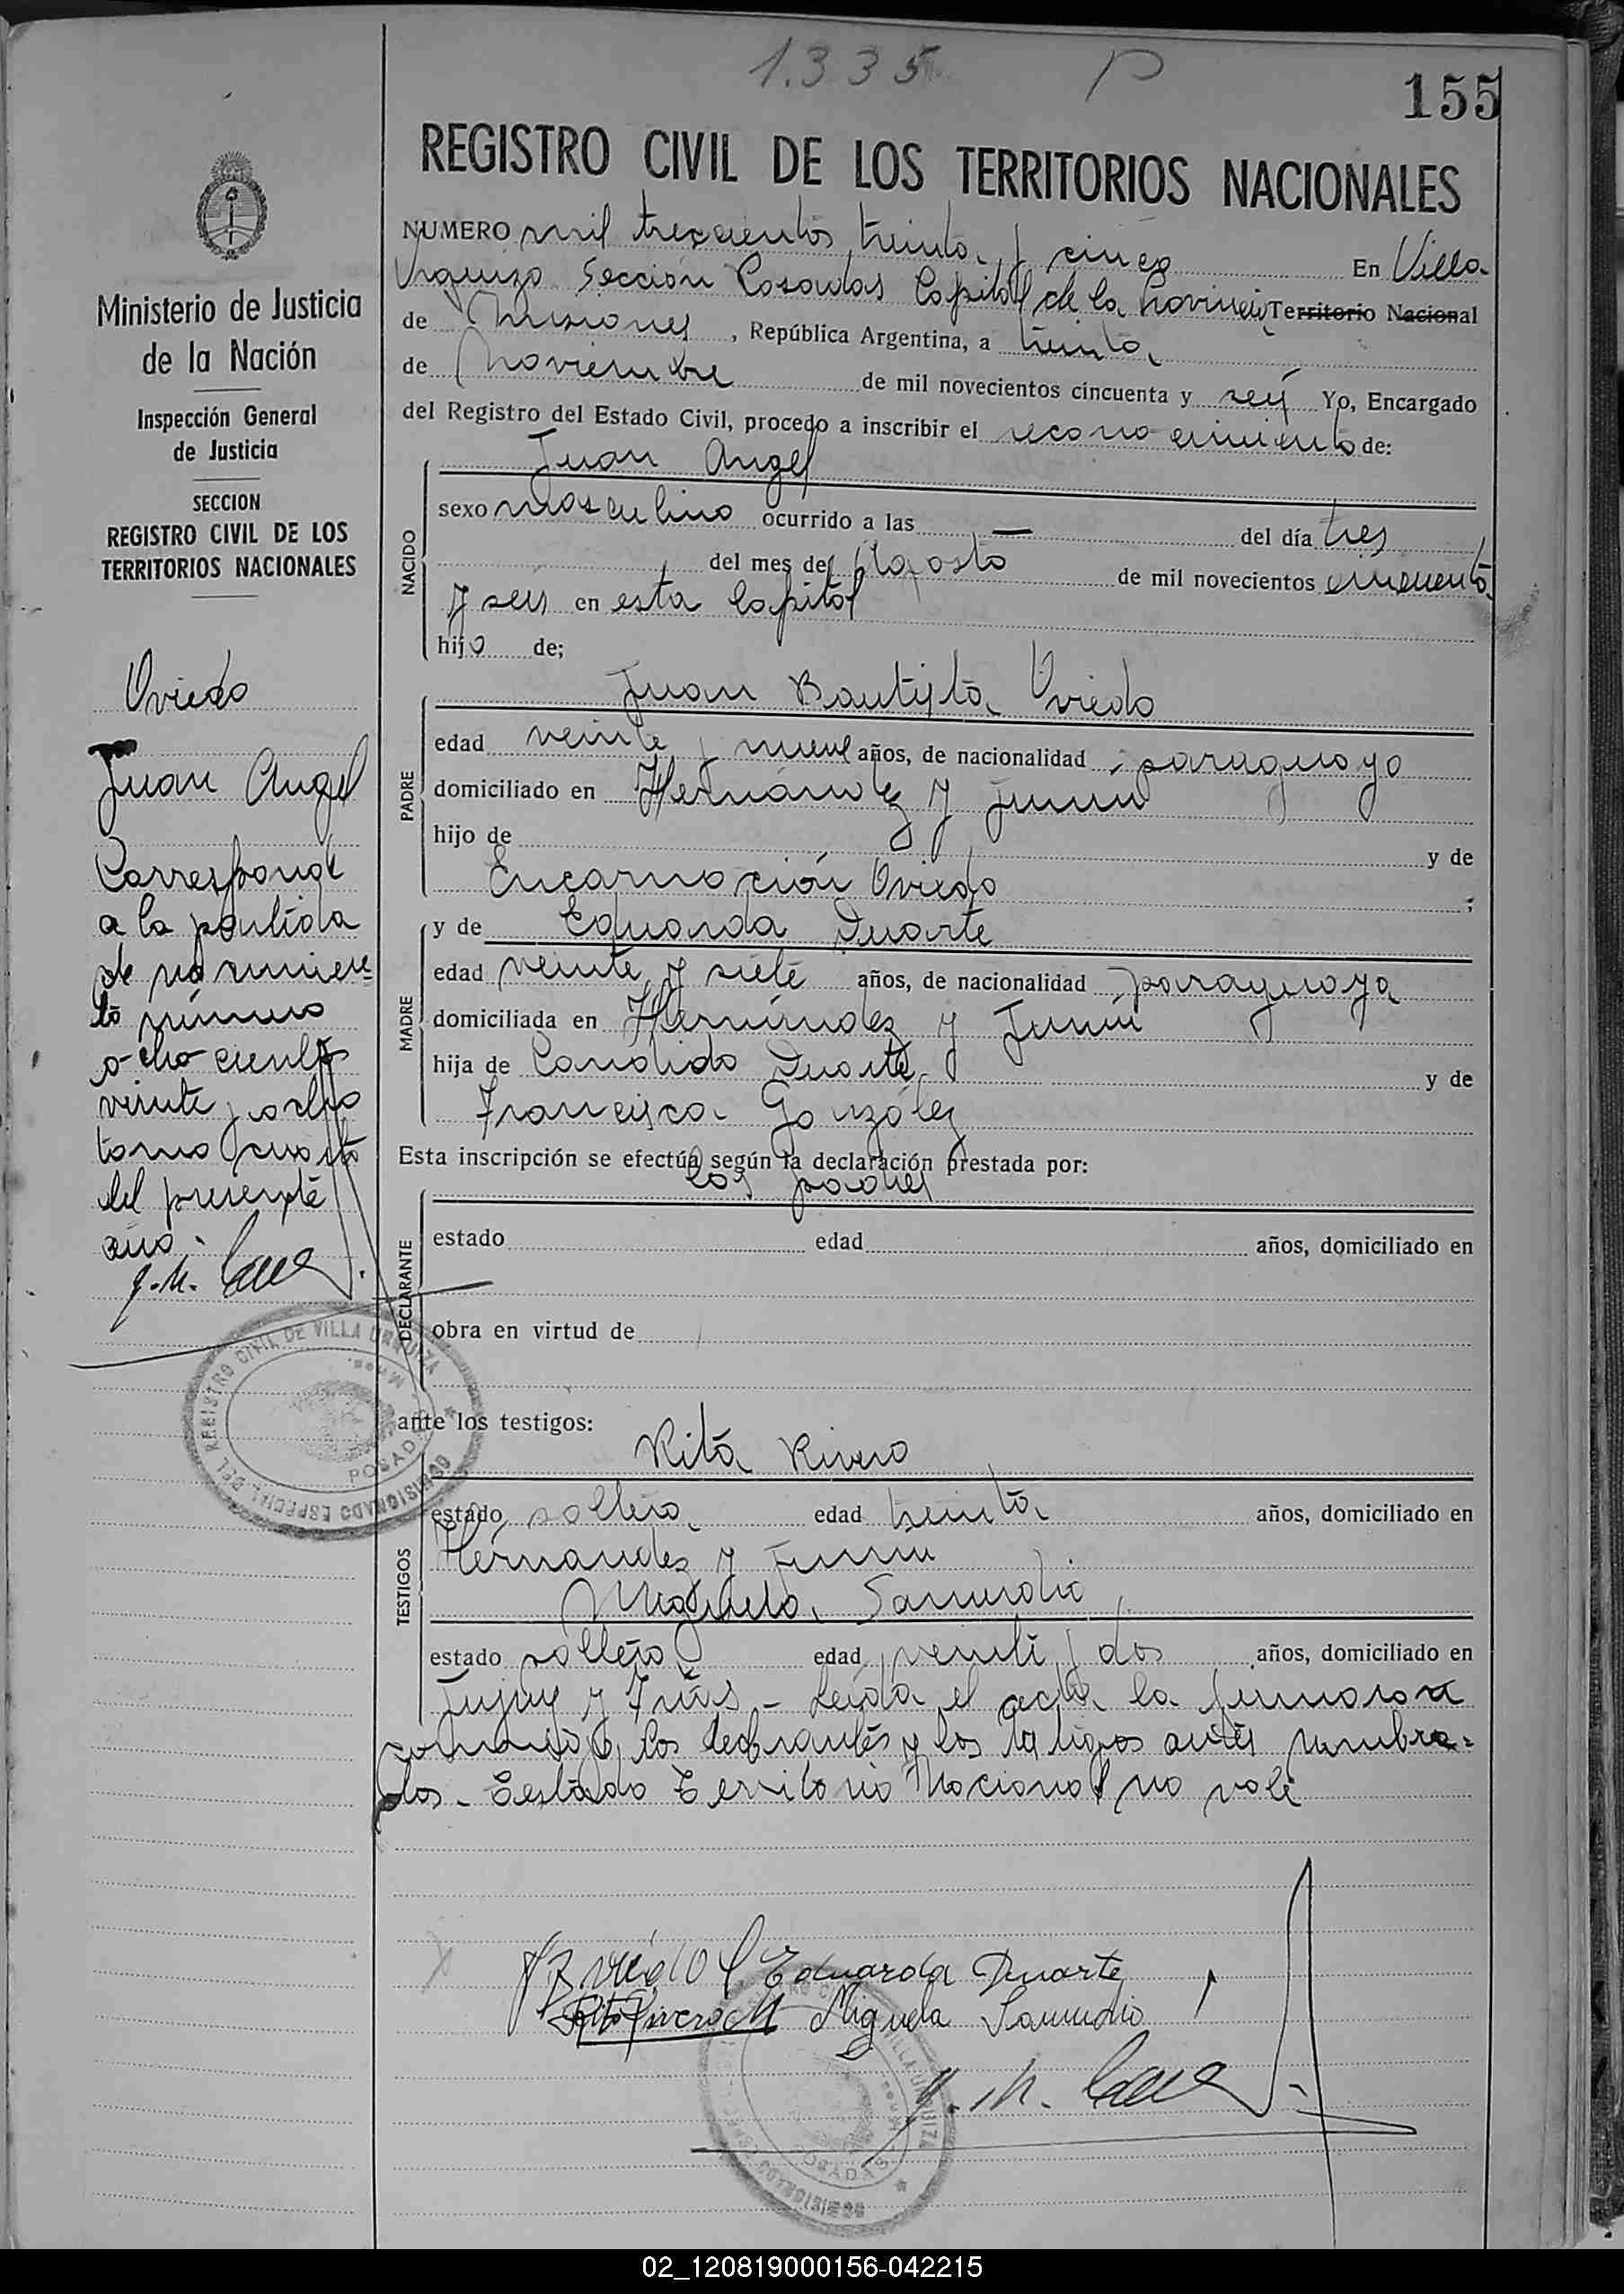 1.335 P
155
REGISTRO CIVIL DE LOS TERRITORIOS NACIONALES
Ministerio de Justicia
de la Nación
Inspección General
de Justicia
SECCION
REGISTRO CIVIL DE LOS
TERRITORIOS NACIONALES
Oviedo
Juan Angel
Corresponde
a la partida
de nacimien=
to número
ochocientos
veinte y ocho
tomo cuarto
del presente
año.
NUMERO mil trescientos treinta y cinco En Villa
Urquiza Sección Posadas Capital de la Provincia Territorio Nacional
de Misiones, República Argentina, a treinta
de Noviembre de mil novecientos cincuenta y seis Yo, Encargado
del Registro del Estado Civil, procedo a inscribir el reconocimiento de:
Juan Angel
NACIDO
sexo masculino ocurrido a las — del día tres
del mes de Agosto de mil novecientos cincuenta
y seis en esta Capital
hijo de;
Juan Bautista Oviedo
PADRE
edad veinte y nueve años, de nacionalidad paraguayo
domiciliado en Hernández y Junin
hijo de y de
Encarnación Oviedo ;
y de Eduarda Duarte
MADRE
edad veinte y siete años, de nacionalidad paraguaya
domiciliada en Hernández y Junin
hija de Candido Duarte y de
Francisca González
Esta inscripción se efectúa según la declaración prestada por:
los padres
DECLARANTE
estado edad años, domiciliado en
obra en virtud de
ante los testigos:
Rita Rivero
TESTIGOS
estado soltera edad treinta años, domiciliado en
Hernandez y Junin
Miguela Samudio
estado soltera edad veinte y dos años, domiciliado en
Jujuy y Frías - Leída el acta la firmaron
conmigo los declarantes y los testigos antes nombra=
dos. Testado Territorio Nacional no vale
J B Oviedo Eduarda Duarte
Rita Rivero M Miguela Samudio
COMISIONADO ESPECIAL DEL REGISTRO CIVIL DE VILLA URQUIZA
POSADAS
02_120819000156-042215